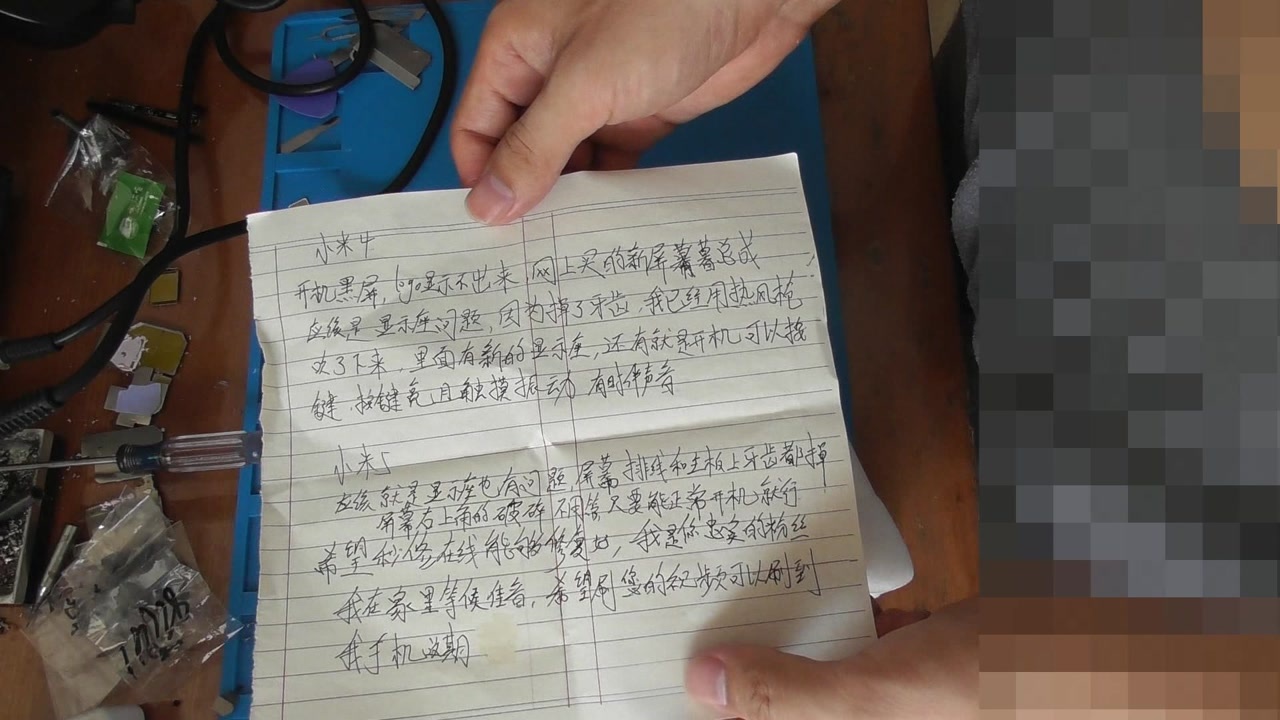 小米4
开机黑屏,logo显示不出来 网上买的新屏幕总成
应该是显示座问题,因为掉了牙齿,我已经用热风枪
吹了下来,里面有新的显示座,还有就是开机可以按
键,按键亮,且触摸振动 有时伴声音
小米5
应该就是显示座也有问题 屏幕排线和主板上牙齿都掉
屏幕右上角的破碎不用管只要能正常开机就行
希望 修在线能够修复好,我是你忠实的粉丝
我在家里等候佳音,希望刷您的视频可以刷到
我手机这期